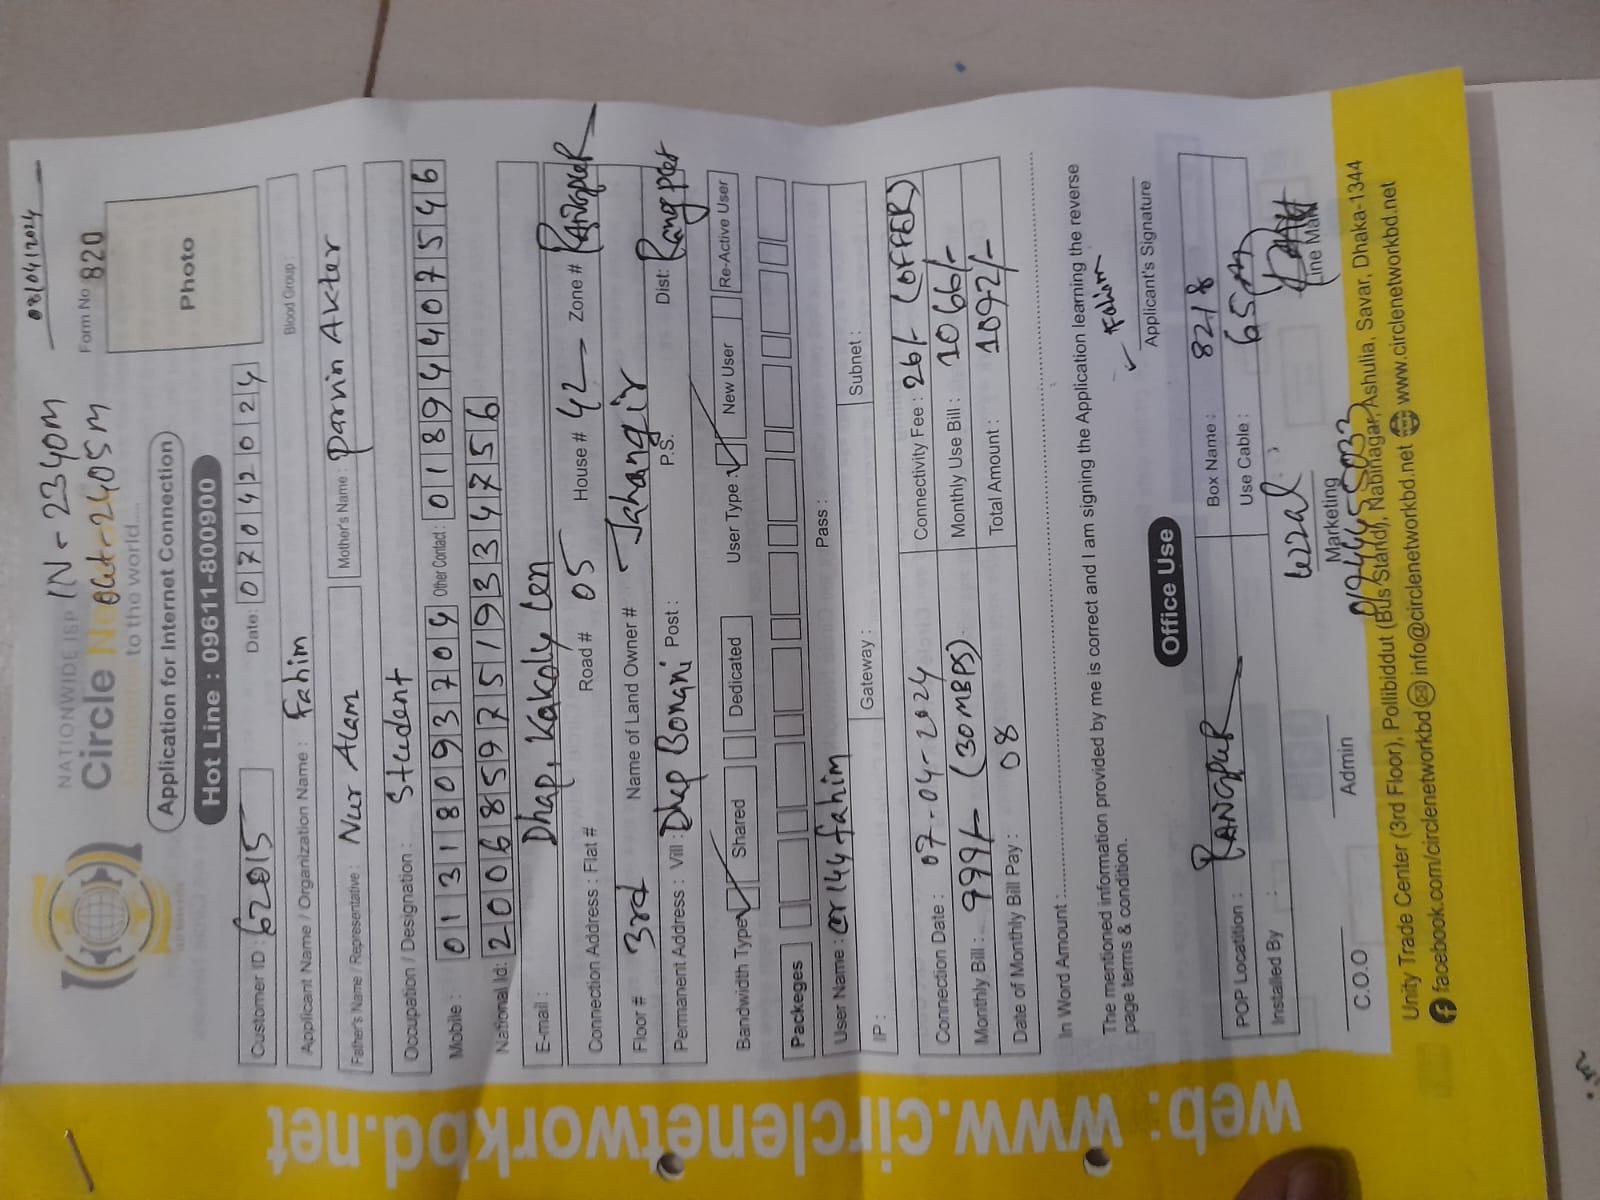 08/04/2024
NATIONWIDE ISP IN - 2340m
Form No 820
Circle Net out-2405m
to the world....
Application for Internet Connection
Photo
Hot Line : 09611-800900
Customer ID : 62015 Date: 07042024
Blood Group:
Applicant Name / Organization Name : Fahim
Father's Name / Representative : Nur Alam Mother's Name : Parvin Akter
Occupation / Designation : Student
Mobile : 01318093704 Other Contact : 01894407546
National Id: 20068597519334756
E-mail : Dhap, Kakoly Len
Connection Address : Flat # Road # 05 House # 42 Zone # RANGPUR
Floor # 3rd Name of Land Owner # Jahangir
Permanent Address : Vill : Dhap Bonani Post : P.S. Dist: Rangpur
Bandwidth Type Shared Dedicated User Type : New User Re-Active User
Packeges
User Name : cr144fahim Pass :
IP : Gateway : Subnet :
Connection Date : 07-04-2024 Connectivity Fee : 26/- (OFFER)
Monthly Bill : 999/- (30MBPS) Monthly Use Bill : 1066/-
Date of Monthly Bill Pay : 08 Total Amount : 1092/-
In Word Amount :
The mentioned information provided by me is correct and I am signing the Application learning the reverse
page terms & condition.
Fahim
Applicant's Signature
Office Use
POP Locatition : RANGPUR Box Name : 8218
Installed By : Use Cable : 65m
C.O.O Admin Marketing Line Man
Unity Trade Center (3rd Floor), Pollibiddut (Bus Stand), Nabinagar, Ashulia, Savar, Dhaka-1344
facebook.com/circlenetworkbd info@circlenetworkbd.net www.circlenetworkbd.net
web: www.circlenetworkbd.net